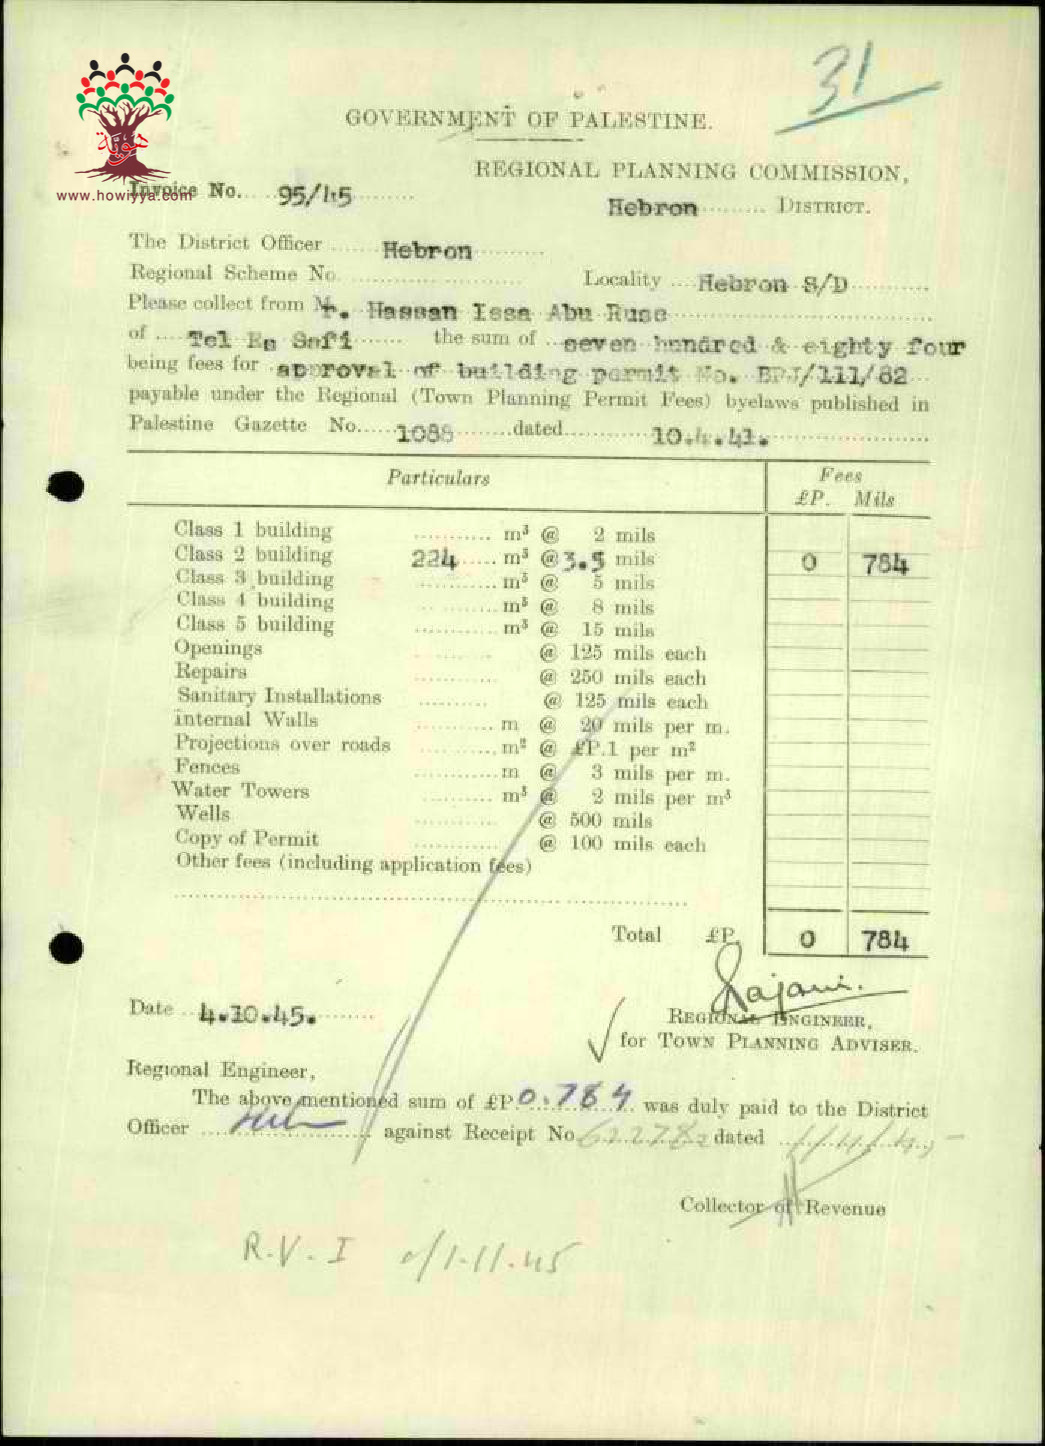 31
GOVERNMENT OF PALESTINE.
REGIONAL PLANNING COMMISSION,
هوية
www.howiyya.com
Invoice No. 95/45
Hebron DISTRICT.
The District Officer Hebron
Regional Scheme No. Locality Hebron S/D
Please collect from Mr. Hassan Issa Abu Ruse
of Tel Es Safi the sum of seven hundred & eighty four
being fees for approval of building permit No. BPJ/111/82
payable under the Regional (Town Planning Permit Fees) byelaws published in
Palestine Gazette No. 1088 dated 10.4.41.
Particulars Fees
£P. Mils
Class 1 building m³ @ 2 mils
Class 2 building 224 m³ @ 3.5 mils 0 784
Class 3 building m³ @ 5 mils
Class 4 building m³ @ 8 mils
Class 5 building m³ @ 15 mils
Openings @ 125 mils each
Repairs @ 250 mils each
Sanitary Installations @ 125 mils each
Internal Walls m @ 20 mils per m.
Projections over roads m² @ £P.1 per m²
Fences m @ 3 mils per m.
Water Towers m³ @ 2 mils per m³
Wells @ 500 mils
Copy of Permit @ 100 mils each
Other fees (including application fees)
Total £P. 0 784
Date 4.10.45.
REGIONAL ENGINEER,
for TOWN PLANNING ADVISER.
Regional Engineer,
The above mentioned sum of £P. 0.784 was duly paid to the District
Officer against Receipt No dated
Collector of Revenue
R.V. I 1.11.45